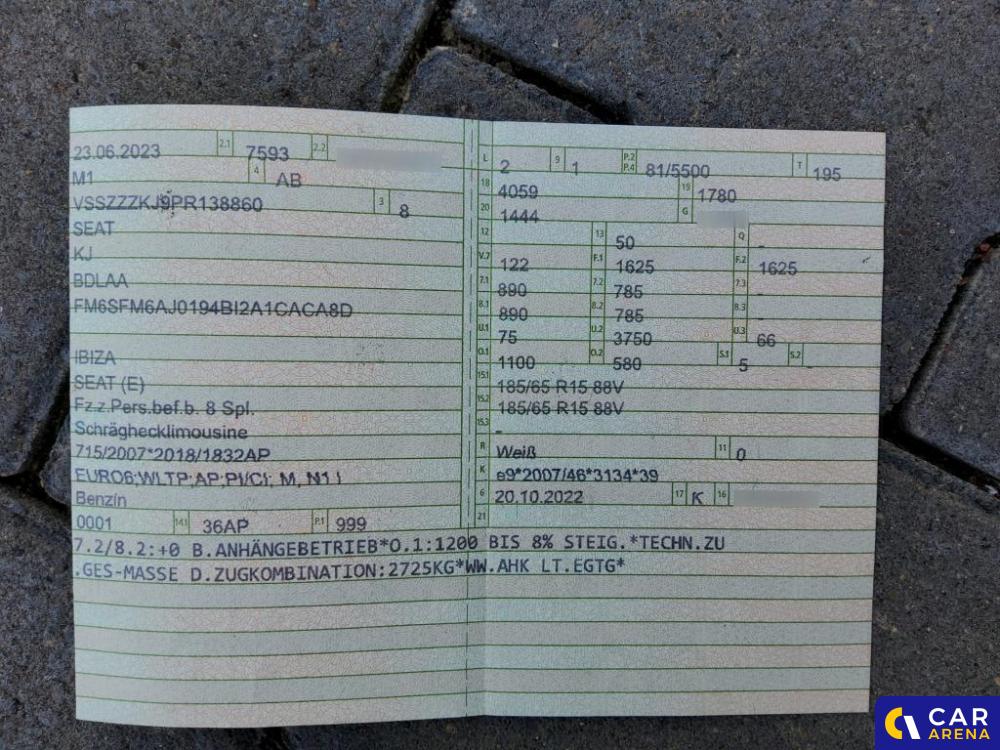 23.06.2023 2.1 7593 2.2
M1 4 AB
VSSZZZKJ9PR138860 3 8
SEAT
KJ
BDLAA
FM6SFM6AJ0194BI2A1CACA8D
IBIZA
SEAT (E)
Fz.z.Pers.bef.b. 8 Spl.
Schräghecklimousine
715/2007*2018/1832AP
EURO6;WLTP;AP;PI/CI; M, N1 I
Benzin
0001 14.1 36AP P.1 999
L 2 9 1 P.2 P.4 81/5500 T 195
18 4059 19 1780
20 1444 G
12 13 50 Q -
V.7 122 F.1 1625 F.2 1625
7.1 890 7.2 785 7.3 -
8.1 890 8.2 785 8.3 -
U.1 75 U.2 3750 U.3 66
O.1 1100 O.2 580 S.1 5 S.2 -
15.1 185/65 R15 88V
15.2 185/65 R15 88V
15.3 -
R Weiß 11 0
K e9*2007/46*3134*39
6 20.10.2022 17 K 16
21
7.2/8.2:+0 B.ANHÄNGEBETRIEB*O.1:1200 BIS 8% STEIG.*TECHN.ZU
.GES-MASSE D.ZUGKOMBINATION:2725KG*WW.AHK LT.EGTG*
CAR
ARENA